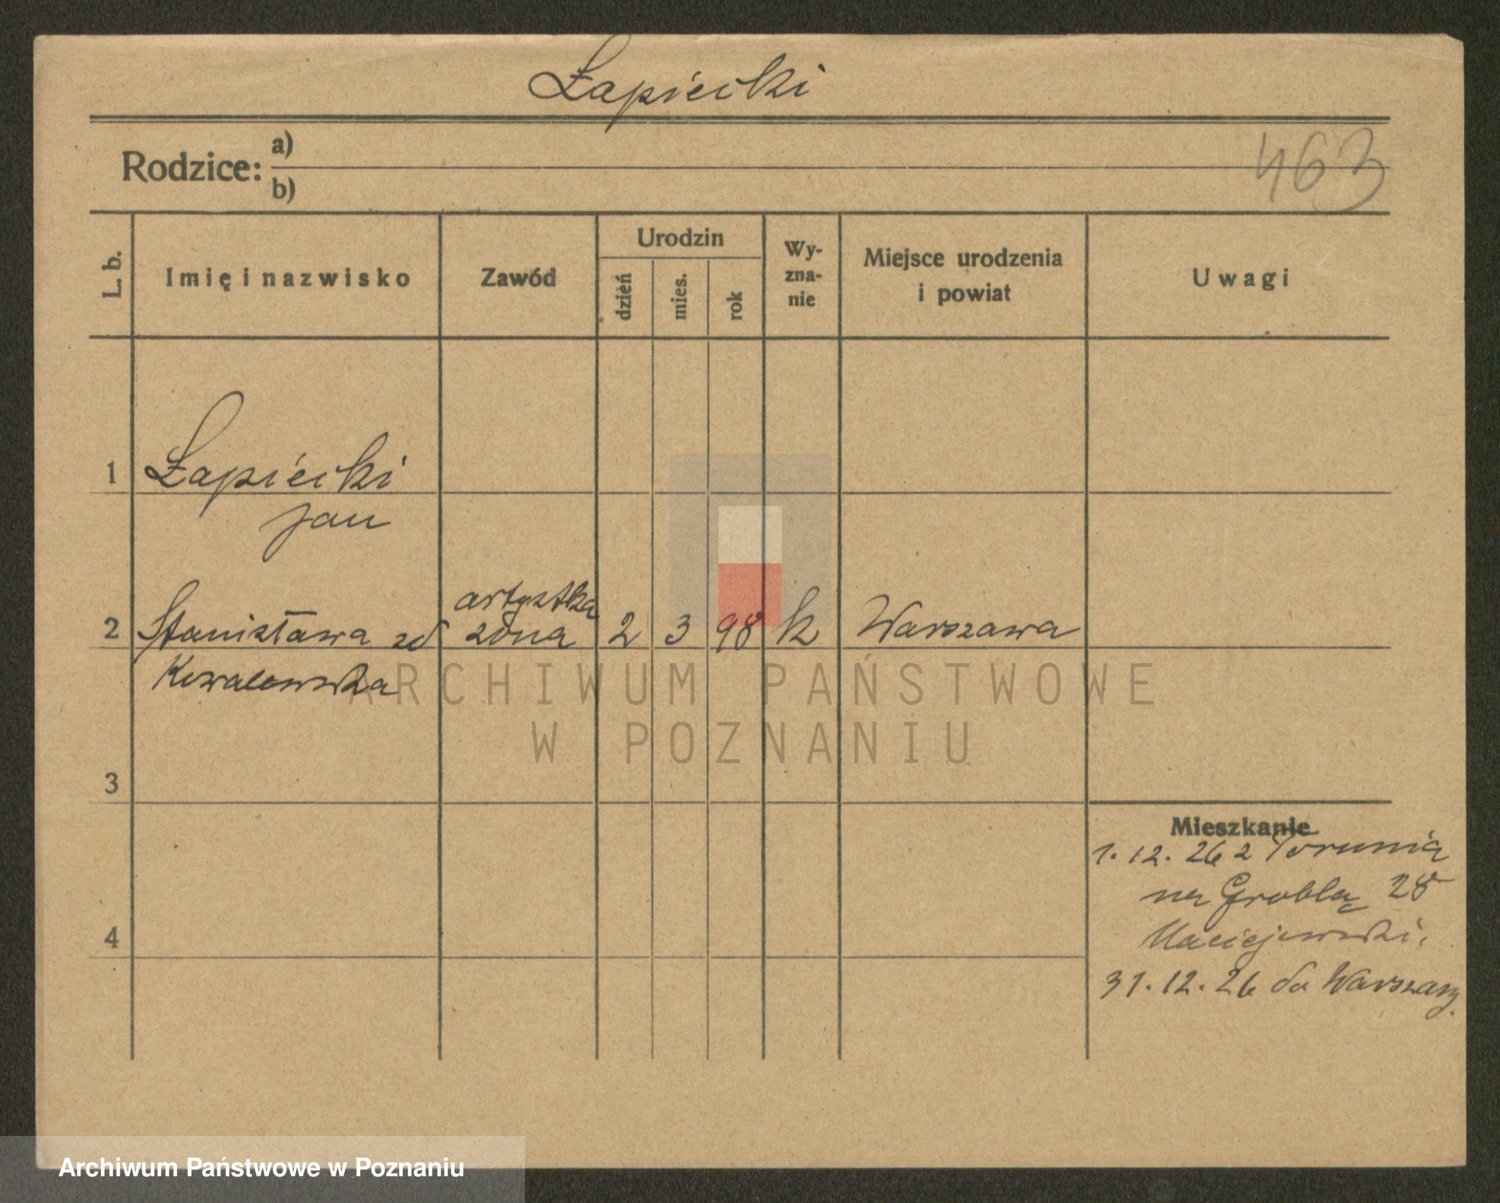 Łapiecki
Rodzice: a)
b)
463
L. b.
Imię i nazwisko
Zawód
Urodzin
dzień
mies.
rok
Wy-
zna-
nie
Miejsce urodzenia
i powiat
Uwagi
1 Łapiecki
Jan
artystka
2 Stanisława zd żona 2 3 98 k Warszawa
Kowalewska
ARCHIWUM PAŃSTWOWE
W POZNANIU
3
Mieszkanie
1.12.26 z Torunia
na Groblą 28
Maciejewski.
4
31.12.26 do Warszawy.
Archiwum Państwowe w Poznaniu